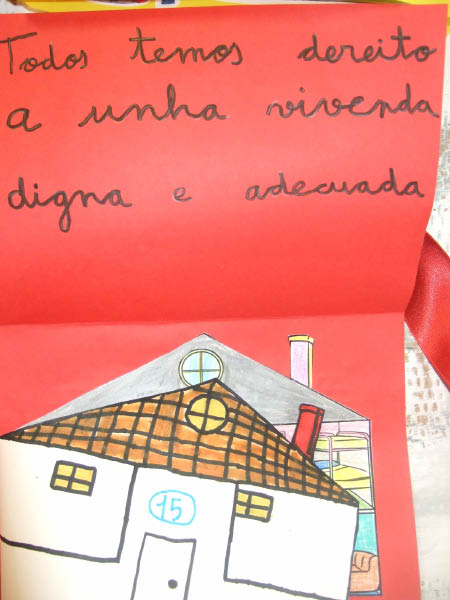 Todos temos dereito
a unha vivenda
digna e adecuada
15